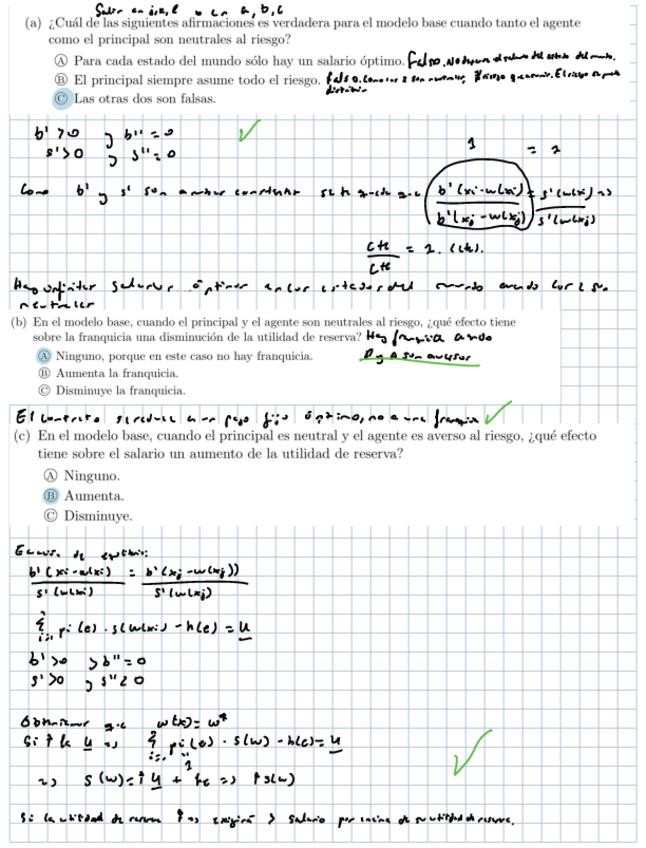 (a) ¿Cuál de las siguientes afirmaciones es verdadera para el modelo base cuando tanto el agente
como el principal son neutrales al riesgo?
Ⓐ Para cada estado del mundo sólo hay un salario óptimo. Falso. No depende el salario del estado del mundo.
Ⓑ El principal siempre asume todo el riesgo. Falso. Como los 2 son neutrales,
Ⓒ Las otras dos son falsas.
b' >0 y b'' = 0
s' >0 y s'' = 0
1 = 1
Como b' y s' son ambas constantes
b'(xi-w(xi)) / b'(xj-w(xj)) = s'(w(xi)) / s'(w(xj)) =>
cte / cte = 1. (cte).
Hay infinitos salarios óptimos en los estados del mundo cuando los 2 son
neutrales
(b) En el modelo base, cuando el principal y el agente son neutrales al riesgo, ¿qué efecto tiene
sobre la franquicia una disminución de la utilidad de reserva? Hay franquicia cuando
P y A son aversos
Ⓐ Ninguno, porque en este caso no hay franquicia.
Ⓑ Aumenta la franquicia.
Ⓒ Disminuye la franquicia.
El contrato se reduce a un pago fijo óptimo, no a una franquicia
(c) En el modelo base, cuando el principal es neutral y el agente es averso al riesgo, ¿qué efecto
tiene sobre el salario un aumento de la utilidad de reserva?
Ⓐ Ninguno.
Ⓑ Aumenta.
Ⓒ Disminuye.
b'(xi-w(xi)) / s'(w(xi)) = b'(xj-w(xj)) / s'(w(xj))
Σ pi(e) · s(w(xi)) - h(e) = u
b' >0 y b'' = 0
s' >0
w(x) = w*
Si ↑ la u => Σ pi(e) · s(w) - h(e) = u
1
=> s(w) = ↑ u + => ↑ s(w)
Si la utilidad de reserva ↑ => exigirá > salario por encima de su utilidad de reserva.